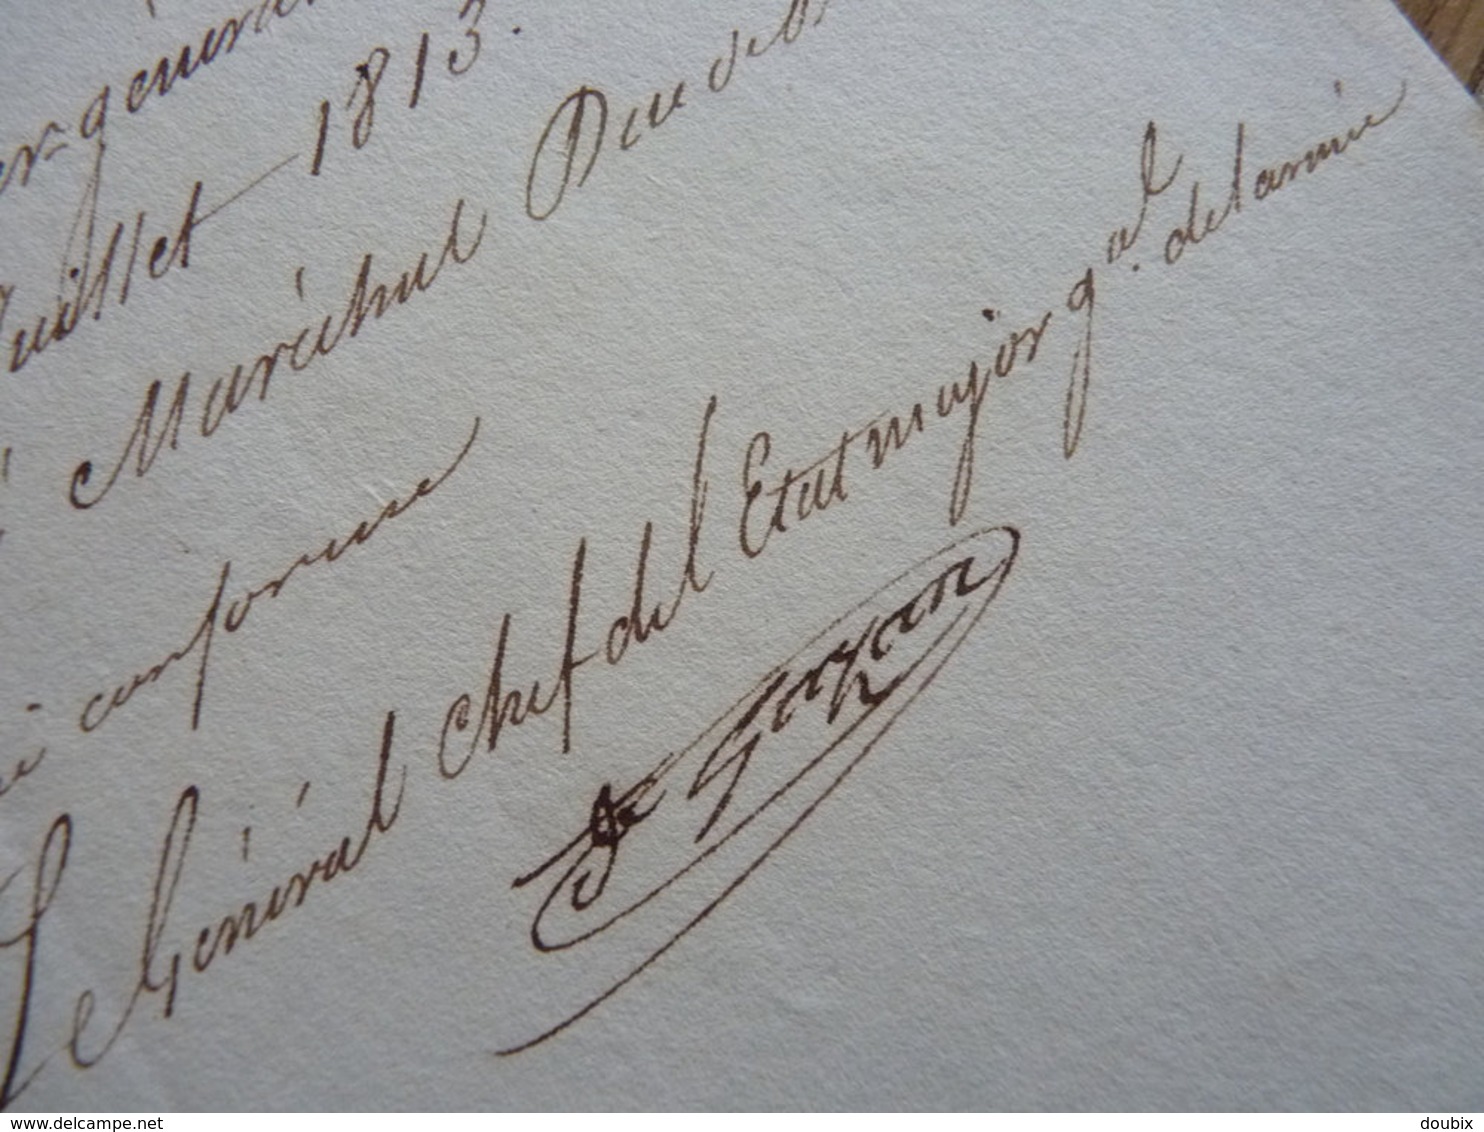 général
Juillet 1813.
Maréchal Duc de
conforme
Le Général chef de l'Etat major gal. de l'armée
De Gazan
delcampe.net
doubix